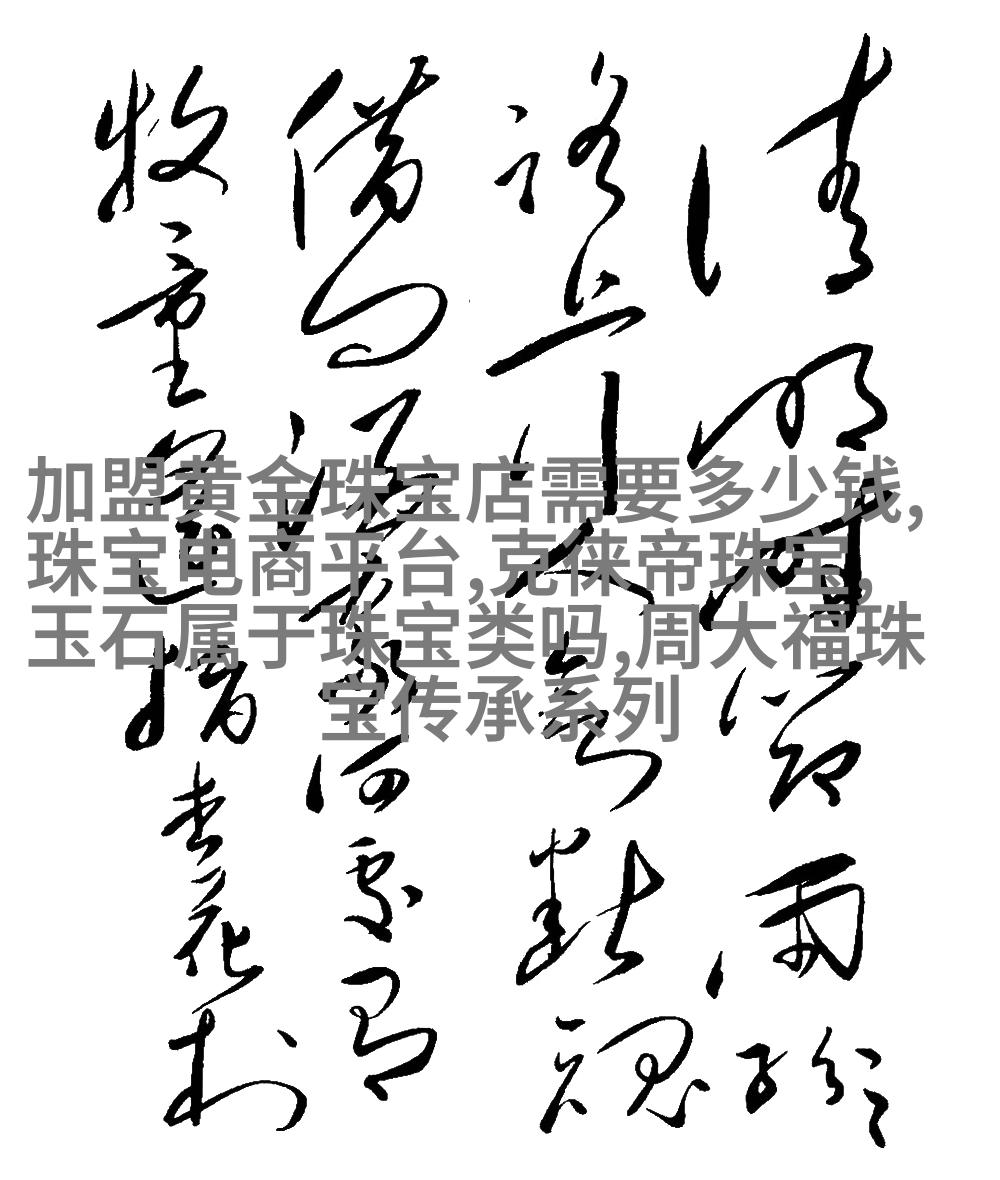 清明時節雨紛々
路上行人欲斷魂
借问酒家何处有
牧童遥指杏花村
加盟黄金珠宝店需要多少钱,
珠宝电商平台,克徕帝珠宝,
玉石属于珠宝类吗,周大福珠
宝传承系列